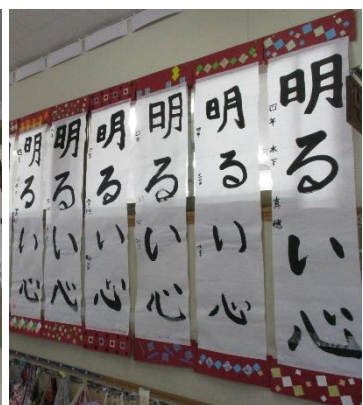 明るい心
四年 木下 直穂
明るい心
明るい心
明るい心
明るい心
明るい心